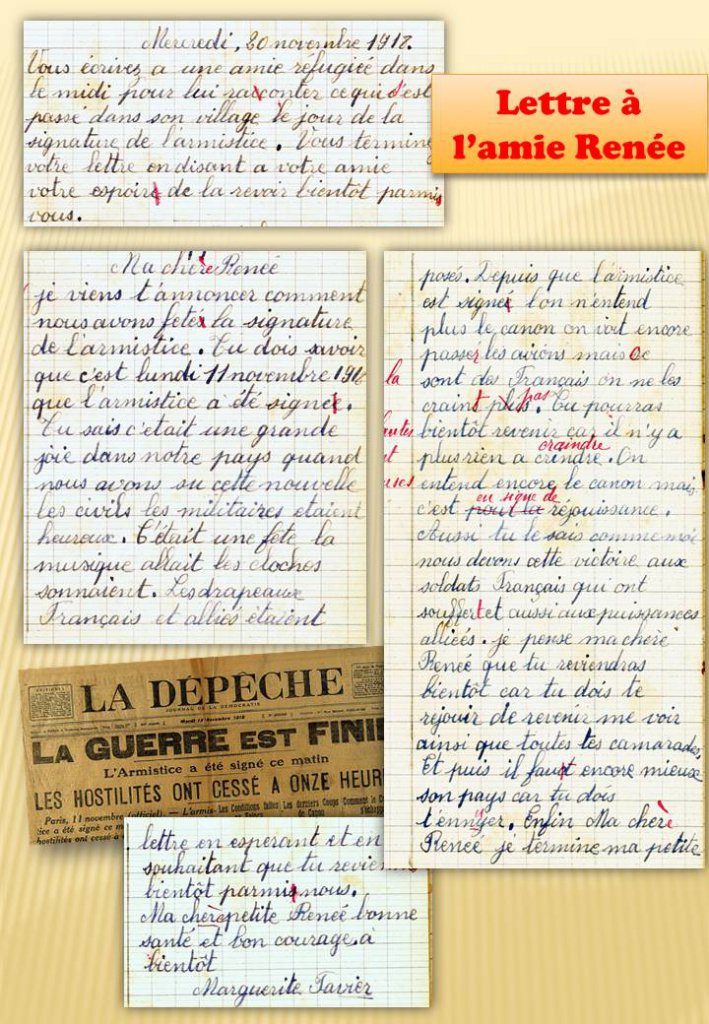 Mercredi, 20 novembre 1918.
Vous écrivez a une amie réfugiée dans
le midi pour lui raconter ce qui s'est
passé dans son village le jour de la
signature de l'armistice. Vous terminez
votre lettre en disant a votre amie
votre espoir de la revoir bientot parmi
vous.
Lettre à
l'amie Renée
Ma chère Renée
je viens t'annoncer comment
nous avons feté la signature
de l'armistice. Tu dois savoir
que c'est lundi 11 novembre 1918
que l'armistice a été signé.
Tu sais c'était une grande
joie dans notre pays quand
nous avons su cette nouvelle
les civils les militaires etaient
heureux. C'était une fête la
musique allait les cloches
sonnaient. Les drapeaux
Français et alliés étaient
posés. Depuis que l'armistice
est signé l'on n'entend
plus le canon on voit encore
passer les avions mais ce
sont des Français on ne les
craint plus pas. Tu pourras
bientôt revenir car il n'y a
plus rien a crindre craindre. On
entend encore le canon mais
c'est pour la en signe de réjouissance.
Aussi tu le sais comme moi
nous devons cette victoire aux
soldats Français qui ont
souffert et aussi aux puissances
alliées. je pense ma chère
Renée que tu reviendras
bientot car tu dois te
réjouir de revenir me voir
ainsi que toutes tes camarades
Et puis il faut encore mieux
son pays car tu dois
t'ennuyer. Enfin Ma chère
Renée je termine ma petite
la
LA DÉPÊCHE
JOURNAL DE LA DÉMOCRATIE
LA GUERRE EST FINIE
L'Armistice a été signé ce matin
LES HOSTILITÉS ONT CESSÉ A ONZE HEUR
Paris, 11 novembre (officiel). — L'armis-
tice a été signé ce ma
hostilités ont cessé à
Les Conditions faites
Les derniers Coups
de Canon
Comment le C
lettre en esperant et en
souhaitant que tu revien
bientôt parmi nous.
Ma chère petite Renée bonne
santé et bon courage. à
bientôt
Marguerite Tavier